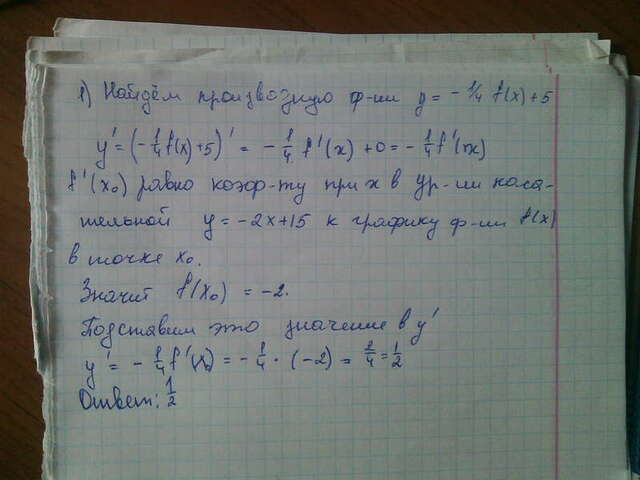 1) Найдём производную ф-ии y = - 1/4 f(x) + 5
y' = (- 1/4 f(x) + 5)' = - 1/4 f'(x) + 0 = - 1/4 f'(x)
f'(x₀) равно коэф-ту при x в ур-ии каса-
тельной y = -2x+15 к графику ф-ии f(x)
в точке x₀.
Значит f'(x₀) = -2.
Подставим это значение в y'
y' = - 1/4 f'(x₀) = - 1/4 · (-2) = 2/4 = 1/2
Ответ: 1/2